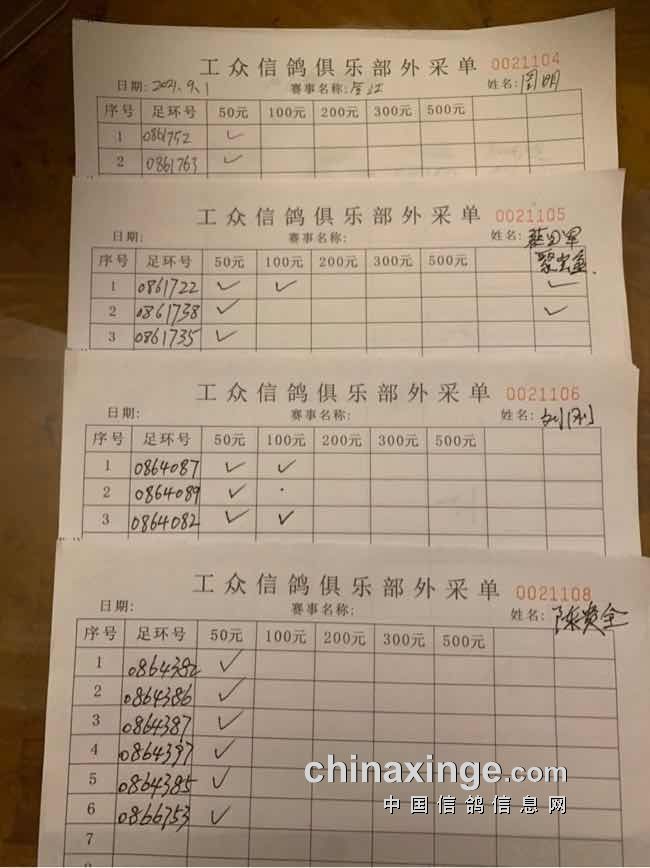 工众信鸽俱乐部外采单 0021104
日期: 2021.9.1 赛事名称: 姓名: 周明
序号 足环号 50元 100元 200元 300元 500元
1 0861752 ✓
2 0861763 ✓
工众信鸽俱乐部外采单 0021105
日期: 赛事名称: 姓名:
序号 足环号 50元 100元 200元 300元 500元
1 0861722 ✓ ✓ ✓
2 0861738 ✓ ✓
3 0861735 ✓
工众信鸽俱乐部外采单 0021106
日期: 赛事名称: 姓名: 刘刚
序号 足环号 50元 100元 200元 300元 500元
1 0864087 ✓ ✓
2 0864089 ✓
3 0864082 ✓ ✓
工众信鸽俱乐部外采单 0021108
日期: 赛事名称: 姓名: 陈贵全
序号 足环号 50元 100元 200元 300元 500元
1 0864392 ✓
2 0864386 ✓
3 0864387 ✓
4 0864397 ✓
5 0864385 ✓
6 0866753 ✓
7
chinaxinge.com
中国信鸽信息网